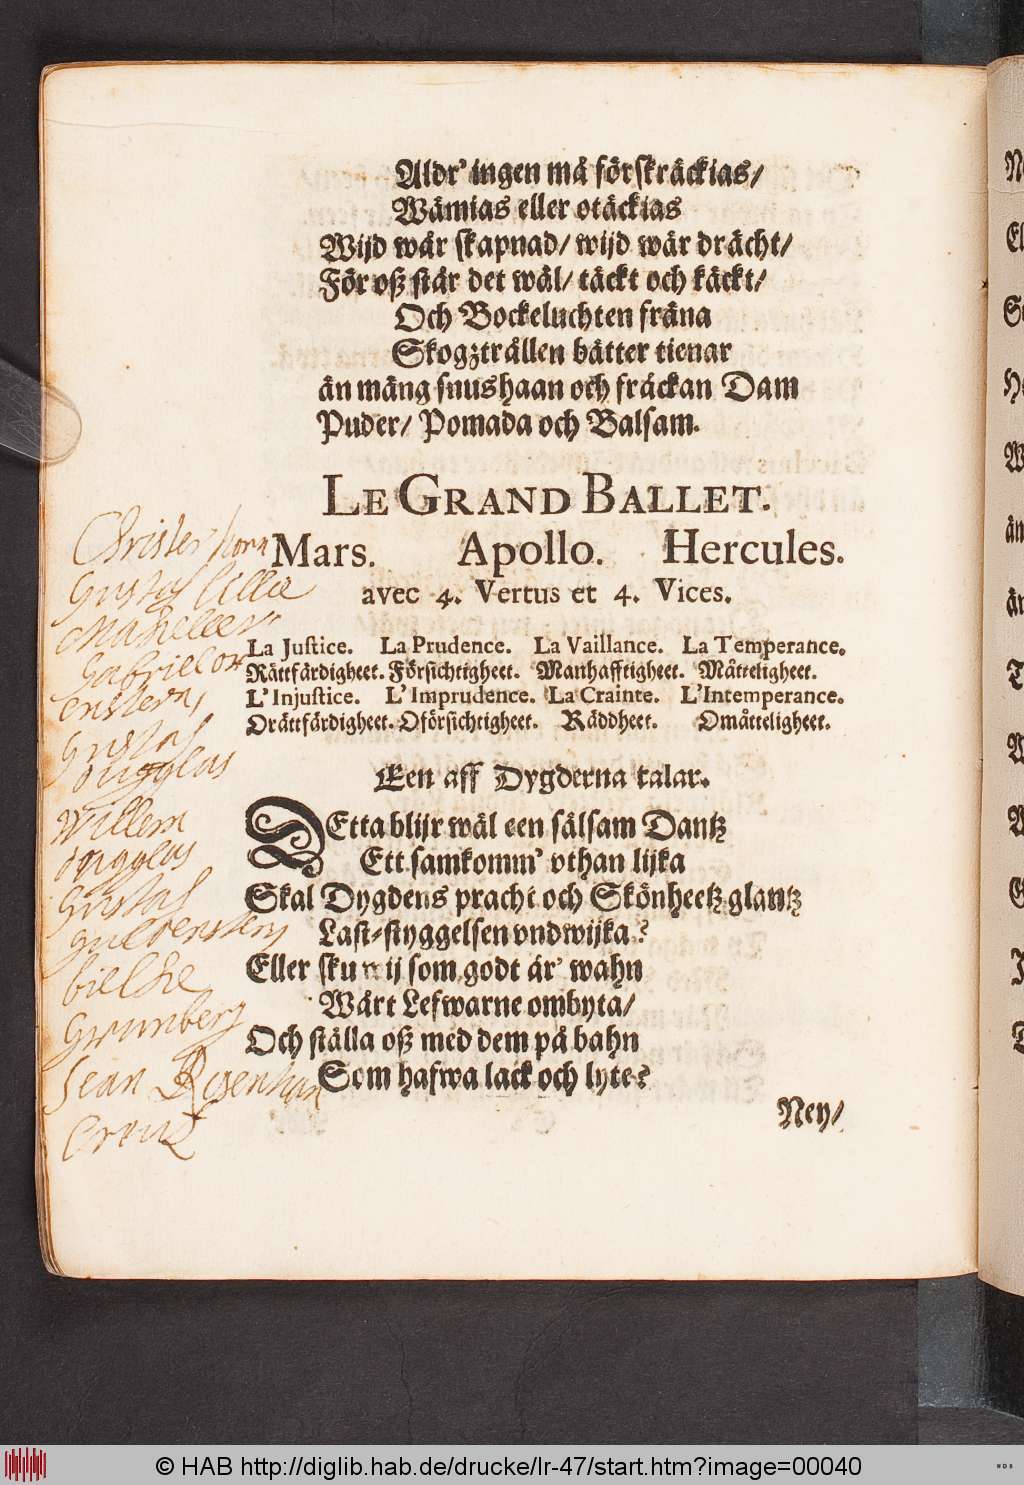 Aldr' ingen må förskräckias/
Wämias eller otäckias
Wijd wår skapnad/ wijd wår drächt/
För oß står det wäl/ täckt och käckt/
Och Bockeluchten fräna
Skogztrållen bätter tienar
än mång snushaan och fräckan Dam
Puder/ Pomada och Balsam.
LE GRAND BALLET.
Mars. Apollo. Hercules.
avec 4. Vertus et 4. Vices.
La Justice. La Prudence. La Vaillance. La Temperance.
Rättfärdigheet. Försichtigheet. Manhafftigheet. Måtteligheet.
L'Injustice. L'Imprudence. La Crainte. L'Intemperance.
Orättfärdigheet. Oförsichtigheet. Räddheet. Omåtteligheet.
Een aff Dygderna talar.
DEtta blijr wäl een sälsam Dantz
Ett samkomm' vthan lijka
Skal Dygdens pracht och Skönheetz glantz
Last-styggelsen vndwijka?
Eller sku wij som godt är' wahn
Wårt Lefwarne ombyta/
Och ställa oß med dem på bahn
Som hafwa lack och lyte?
Ney/
Christer horn
Gustaf lillie
Gabriel ox
enstern
Gustaf
duglas
Willem
duglas
Gustaf
Guldenstern
bielke
Grunberg
Jean Rosenhan
Creutz
© HAB http://diglib.hab.de/drucke/lr-47/start.htm?image=00040